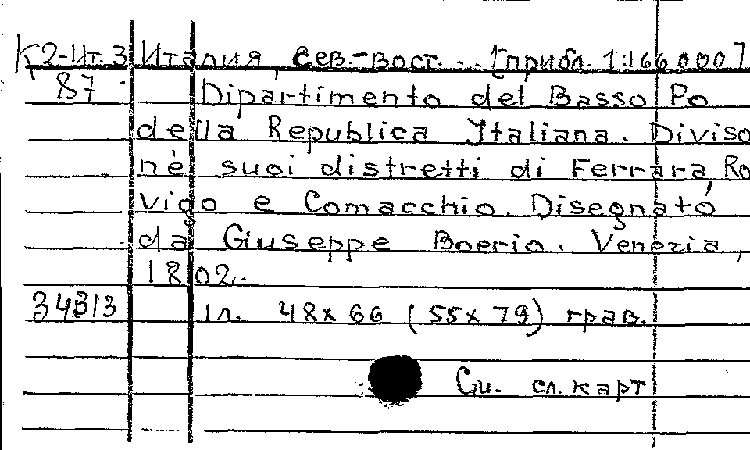 К2-Ит.3 Италия, сев.-вост. [прибл. 1:166 000]
87 Dipartimento del Basso Po
della Republica Italiana. Diviso
nè suoi distretti di Ferrara, Ro
vigo e Comacchio. Disegnato
da Giuseppe Boerio. Venezia,
1802.
34313 1л. 48x66 (55x79) грав.
См. сл. карт